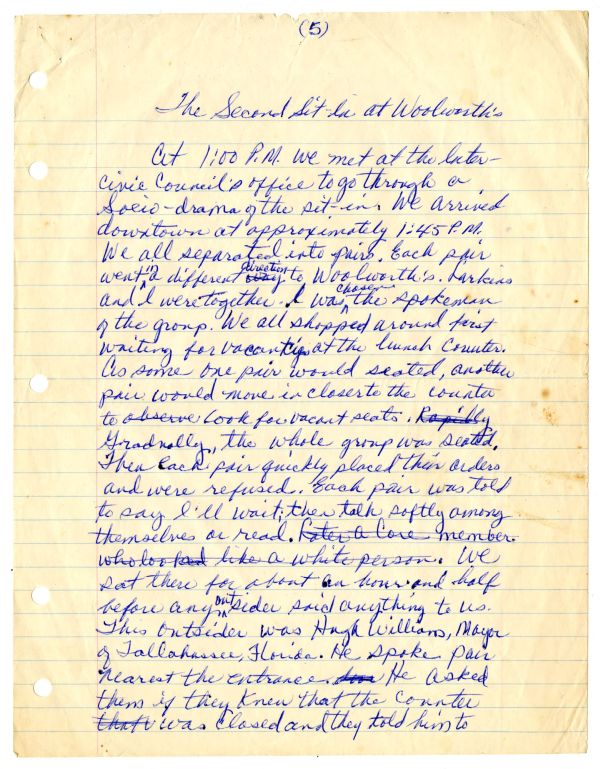 (5)
The Second Sit-In at Woolworth's
At 1:00 P.M. we met at the Inter-
civic Council's office to go through a
Socio-drama of the sit-in. We arrived
downtown at approximately 1:45 P.M.
We all separated into pairs. Each pair
went in a different way direction to Woolworth's. Larkins
and I were together. I was chosen the spokesman
of the group. We all shopped around first
waiting for vacancies at the lunch counter.
As some one pair would seated, another
pair would move in closer to the counter
to observe look for vacant seats. Rapidly
Gradually, the whole group was seated.
Then each pair quickly placed their orders
and were refused. Each pair was told
to say I'll wait; then talk softly among
themselves or read. Later a Core member
who looked like a white person. We
sat there for about an hour and half
before any outsider said anything to us.
This outsider was Hugh Williams, Mayor
of Tallahassee, Florida. He spoke pair
nearest the entrance. He asked
them if they knew that the counter
that was closed and they told him to